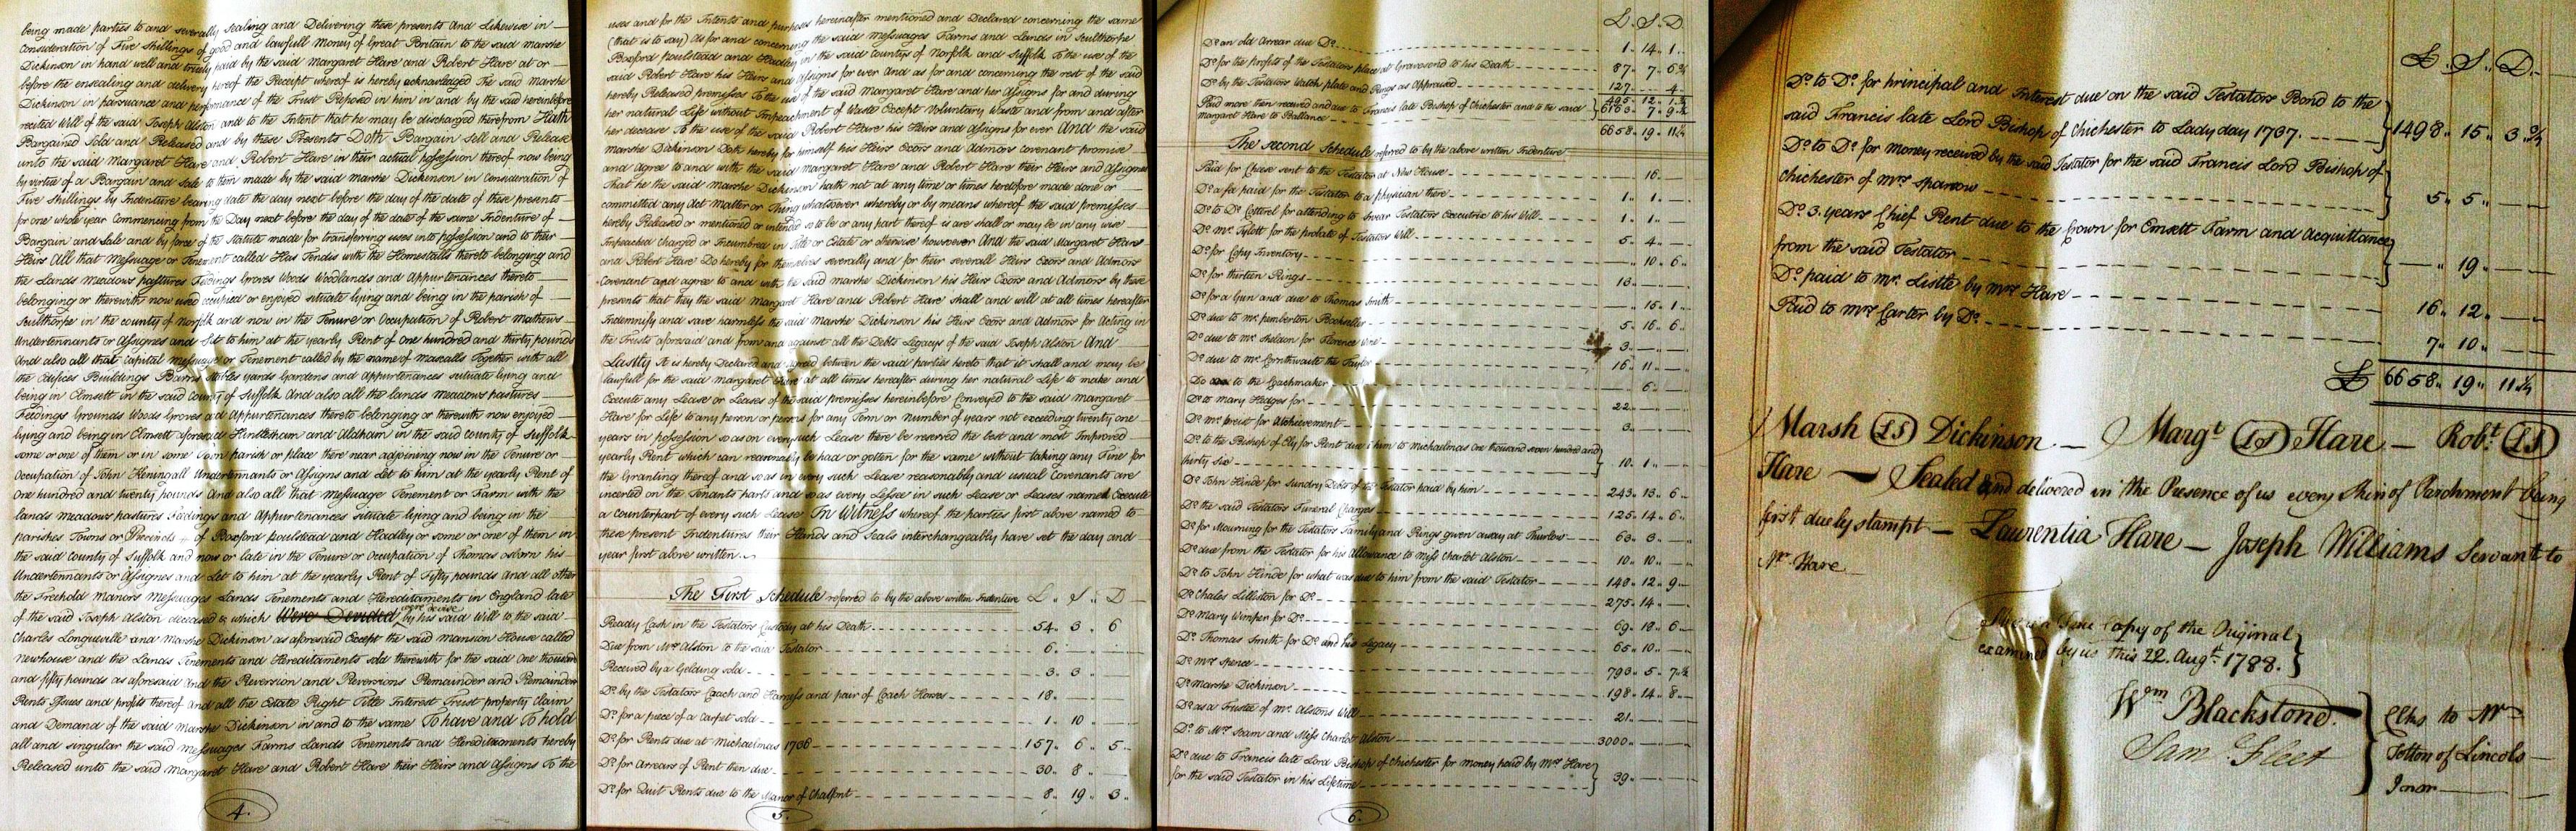 being made parties to and severally sealing and Delivering these presents And Likewise in
Consideration of Five Shillings of good and lawfull Money of Great Britain to the said Marshe
Dickinson in hand well and truely paid by the said Margaret Hare and Robert Hare at or
before the ensealing and delivery hereof the Receipt whereof is hereby acknowledged The said Marshe
Dickinson in pursuance and performance of the Trust Reposed in him in and by the said hereinbefore
recited Will of the said Joseph Alston and to the Intent that he may be discharged therefrom Hath
Bargained Sold and Released and by these Presents Doth Bargain Sell and Release
unto the said Margaret Hare and Robert Hare in their actual possession thereof now being
by virtue of a Bargain and Sale to them made by the said Marshe Dickinson in Consideration of
Five Shillings by Indenture bearing date the day next before the day of the date of these presents
for one whole year Commencing from the Day next before the day of the date of the same Indenture of
Bargain and Sale and by force of the Statute made for transferring uses into possession and to their
Heirs All that Messuage or Tenement called Har Tendis with the Homestalls thereto belonging and
the Lands Meadows pastures Feedings Groves Woods Woodlands and Appurtenances thereto
belonging or therewith now used occupied or enjoyed situate lying and being in the parish of
Sculthorpe in the county of Norfolk and now in the Tenure or Occupation of Robert Mathews
Undertennants or Assigns and Let to him at the yearly Rent of one hundred and thirty pounds
And also all that Capital Messuage or Tenement called by the name of Mascalls Together with all
the Edifices Buildings Barns Stables yards Gardens and Appurtenances situate lying and
being in Elmsett in the said County of Suffolk And also all the lands meadows pastures
Feedings Grounds Woods Groves and Appurtenances thereto belonging or therewith now enjoyed
lying and being in Elmsett aforesaid Hintlesham and Aldham in the said county of Suffolk
some or one of them or in some Town parish or place there near adjoining now in the Tenure or
Occupation of John Keningall Undertennants or Assigns and Let to him at the yearly Rent of
One hundred and twenty pounds And also all that Messuage Tenement or Farm with the
lands meadows pastures Feedings and Appurtenances situate lying and being in the
parishes Towns or Precincts of Boxford poulstead and Hadley or some or one of them in
the said county of Suffolk and now or late in the Tenure or Occupation of Thomas Osborn his
Undertennants or Assignes and Let to him at the yearly Rent of Fifty pounds And all other
the Freehold Manors Messuages Lands Tenements and Hereditaments in England late
of the said Joseph Alston deceased & which Were Devided were devise by his said Will to the said
Charles Longueville and Marshe Dickinson as aforesaid Except the said mansion House called
Newhouse and the Lands Tenements and Hereditaments sold therewith for the said One thousand
and fifty pounds as aforesaid And the Reversion and Reversions Remainder and Remainders
Rents Issues and profits thereof and all the Estate Right Title Interest Trust property Claim
and Demand of the said Marshe Dickinson in and to the same To have and To hold
all and singular the said Messuages Farms Lands Tenements and Hereditaments hereby
Released unto the said Margaret Hare and Robert Hare their Heirs and Assigns To the
4.
uses and for the Intents and purposes hereinafter mentioned and Declared concerning the same
(that is to say) As for and concerning the said Messuages Farms and Lands in Sculthorpe
Boxford poulstead and Hadley in the said Countys of Norfolk and Suffolk To the use of the
said Robert Hare his Heirs and Assigns for ever And as for and concerning the rest of the said
hereby Released premisses To the use of the said Margaret Hare and her Assigns for and during
her natural Life without Impeachment of Waste Except Voluntary Waste and from and after
her decease To the use of the said Robert Hare his Heirs and Assigns for ever And the said
Marshe Dickinson Doth hereby for himself his Heirs Exors and Admors covenant promise
and agree to and with the said Margaret Hare and Robert Hare their Heirs and Assigns
That he the said Marshe Dickinson hath not at any time or times heretofore made done or
committed any Act Matter or Thing whatsoever whereby or by means whereof the said premisses
hereby Released or mentioned or intended so to be or any part thereof is are shall or may be in any wise
Impeached charged or Incumbred in Title or Estate or otherwise howsoever And the said Margaret Hare
and Robert Hare Do hereby for themselves severally and for their severall Heirs Exors and Admors
Covenant and agree to and with the said Marshe Dickinson his Heirs Exors and Admors by these
presents that they the said Margaret Hare and Robert Hare shall and will at all times hereafter
Indemnify and save harmless the said Marshe Dickinson his Heirs Exors and Admors for Acting in
the Trusts aforesaid and from and against all the Debts Legacys of the said Joseph Alston And
Lastly It is hereby Declared and agreed between the said parties hereto that it shall and may be
lawfull for the said Margaret Hare at all times hereafter during her natural Life to make and
Execute any Lease or Leases of the said premisses hereinbefore Conveyed to the said Margaret
Hare for Life to any person or persons for any Term or Number of years not exceeding twenty one
years in possession so as on every such Lease there be reserved the best and most Improved
yearly Rent which can reasonably be had or gotten for the same without taking any Fine for
the Granting thereof and so as in every such Lease reasonably and usual Covenants are
inserted on the Tenants parts and so as every Lessee in such Lease or Leases named Execute
a Counterpart of every such Lease In Witness whereof the parties first above named to
these present Indentures their Hands and Seals interchangeably have set the day and
year first above written
The First Schedule referred to by the above written Indenture L. S. D
Ready Cash in the Testators Custody at his Death 54. 3. 6
Due from Mrs Alston to the said Testator 6.
Received by a Gelding sold 3. 3.
Do by the Testators Coach and Harness and pair of Coach Horses 18.
Do for a piece of a Carpet sold 1. 10
Do for Rents due at Michaelmas 1736 157. 6. 5
Do for Arrears of Rent then due 30. 8.
Do for Quit Rents due to the Manor of Chalfont 8. 19. 3
5.
L. S. D
Do an old Arrear due Do 1. 14. 1
Do for the profits of the Testators place at Gravesend to his Death 87. 7. 6¾
Do by the Testators Watch plate and Rings as Appraised 127. 4
495. 12. 1¾
Paid more then received and due to Francis late Bishop of Chichester and to the said
Margaret Hare to Ballance 6163. 7. 9½
6658. 19. 11¼
The second Schedule referred to by the above written Indenture
Paid for Chase sent to the Testator at New House 16.
Do a fee paid for the Testator to a physician there 1. 1.
Do to Dr Cotterel for attending to Swear Testators Executrix to his Will 1. 1.
Do Mr Tylott for the probate of Testators Will 5. 4.
Do for Copy Inventory 10. 6
Do for thirteen Rings 13.
Do for a Gun and due to Thomas Smith 15. 1
Do due to Mr pemberton Bookseller 5. 16. 6
Do due to Mr Sheldon for Florence Wine 3.
Do due to Mr Cornthwaite the Taylor 16. 11.
Do to the Coachmaker 6.
Do to Mary Hedges for 22.
Do Mr preist for Atchievement 3.
Do to the Bishop of Ely for Rent due to him to Michaelmas One thousand seven hundred and
thirty six 10. 1.
Do John Hinde for sundry Debts of the Testator paid by him 243. 13. 6
Do the said Testators Funeral Charges 125. 14. 6
Do for Mourning for the Testators Family and Rings given away at Thurlow 63. 3.
Do due from the Testator for his Allowance to Miss Charlot Alston 10. 10.
Do to John Hinde for what was due to him from the said Testator 148. 12. 9
Do Chales Lilliston for Do 275. 14
Do Mary Wimper for Do 69. 18. 6
Do Thomas Smith for Do and his Legacy 65. 10.
Do Mrs Spence 793. 5. 7½
Do Marshe Dickinson 198. 14. 8
Do as a Trustee of Mr Alstons Will 21.
Do to Mrs Soam and Miss Charlot Alston 3000.
Do due to Francis late Lord Bishop of Chichester for money paid by Mrs Hare
for the said Testator in his Lifetime 39.
6.
L. S. D
Do to Do for principal and Interest due on the said Testators Bond to the
said Francis late Lord Bishop of Chichester to Lady day 1737. 1498. 15. 3¾
Do to Do for Money received by the said Testator for the said Francis Lord Bishop of
Chichester of Mrs Sparrow 5. 5.
Do 3. years Chief Rent due to the Crown for Emsett Farm and Acquittance
from the said Testator 19.
Do paid to Mr. Listle by Mrs Hare 16. 12.
Paid to Mrs Carter by Do 7. 10.
£ 6658. 19. 11¼
Marsh LS Dickinson — Margt LS Hare — Robt LS
Hare — Sealed and delivered in the Presence of us every Skin of Parchment being
first duely stampt — Laurentia Hare — Joseph Williams Servant to
Mr Hare
This is a True Copy of the Original
examined by us this 22. Augt 1788.
Wm Blackstone
Sam Fleet
Clks to Mr
Totton of Lincolns
Inn